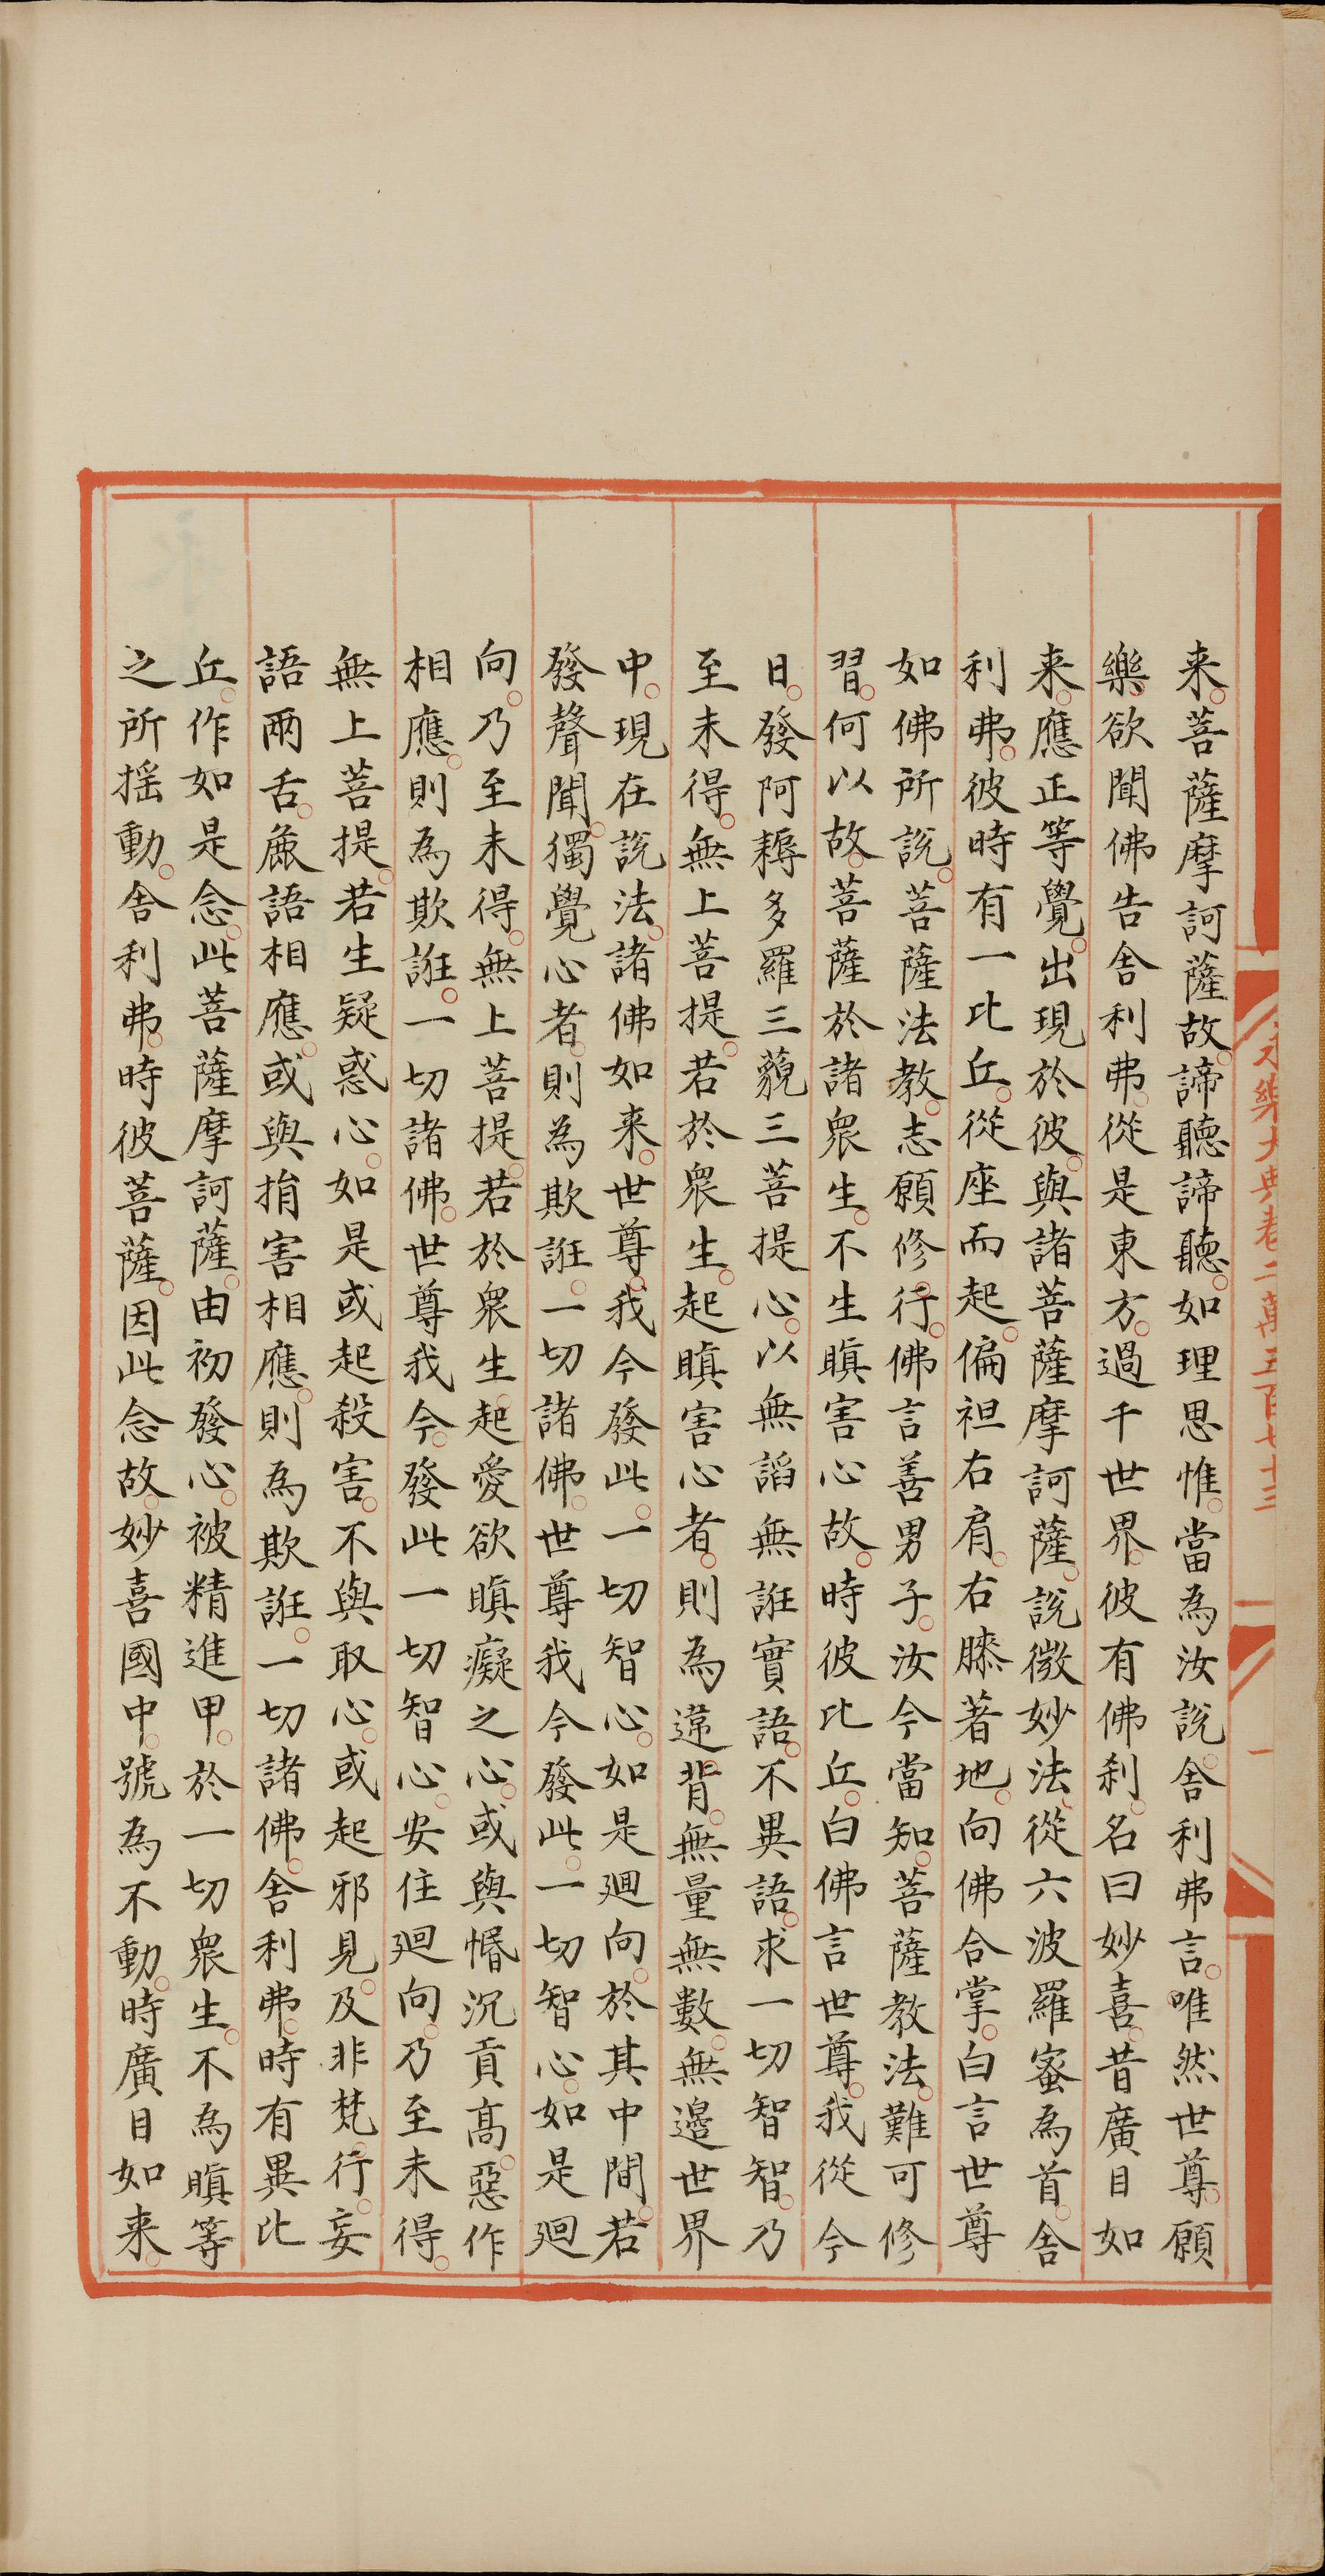 永樂大典卷二萬五百七十三
一
来菩薩摩訶薩故諦聽諦聽如理思惟當為汝說舍利弗言唯然世尊願
樂欲聞佛告舍利弗從是東方過千世界彼有佛刹名曰妙喜昔廣目如
来應正等覺出現於彼與諸菩薩摩訶薩說微妙法從六波羅蜜為首舍
利弗彼時有一比丘從座而起偏袒右肩右膝著地向佛合掌白言世尊
如佛所說菩薩法教志願修行佛言善男子汝今當知菩薩教法難可修
習何以故菩薩於諸衆生不生瞋害心故時彼比丘白佛言世尊我從今
日發阿耨多羅三藐三菩提心以無謟無誑實語不異語求一切智智乃
至未得無上菩提若於衆生起瞋害心者則為違背無量無數無邊世界
中現在說法諸佛如来世尊我今發此一切智心如是廻向於其中間若
發聲聞獨覺心者則為欺誑一切諸佛世尊我今發此一切智心如是廻
向乃至未得無上菩提若於衆生起愛欲瞋癡之心或與惛沉貢髙惡作
相應則為欺誑一切諸佛世尊我今發此一切智心安住廻向乃至未得
無上菩提若生疑惑心如是或起殺害不與取心或起邪見及非梵行妄
語兩舌麁語相應或與捐害相應則為欺誑一切諸佛舍利弗時有異比
丘作如是念此菩薩摩訶薩由初發心被精進甲於一切衆生不為瞋等
之所揺動舍利弗時彼菩薩因此念故妙喜國中號為不動時廣目如来